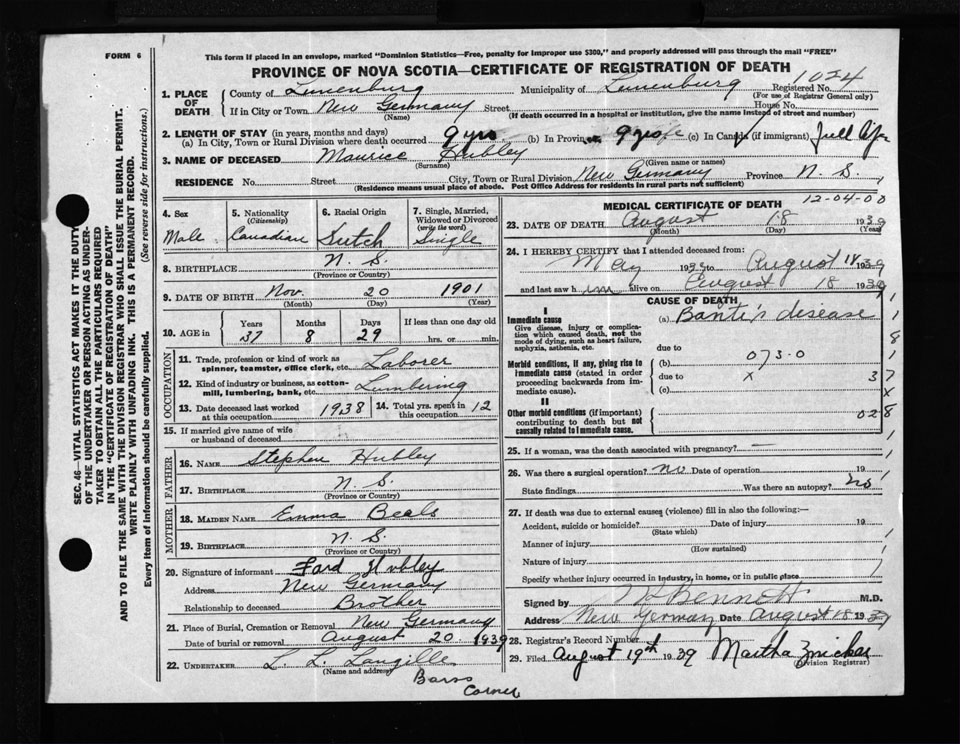 FORM 6
This form if placed in an envelope, marked "Dominion Statistics—Free, penalty for improper use $300," and properly addressed will pass through the mail "FREE"
PROVINCE OF NOVA SCOTIA—CERTIFICATE OF REGISTRATION OF DEATH
1024
1. PLACE OF DEATH
County of Lunenburg Municipality of Lunenburg Registered No.
(For use of Registrar General only)
If in City or Town New Germany Street House No.
(Name) (If death occurred in a hospital or institution, give the name instead of street and number)
2. LENGTH OF STAY (in years, months and days)
(a) In City, Town or Rural Division where death occurred 9 yrs (b) In Province 9 yrs (c) In Canada (if immigrant)
3. NAME OF DECEASED Maurice Hubley
(Surname) (Given name or names)
RESIDENCE No. Street City, Town or Rural Division New Germany Province N. S.
(Residence means usual place of abode. Post Office Address for residents in rural parts not sufficient)
SEC. 46—VITAL STATISTICS ACT MAKES IT THE DUTY
OF THE UNDERTAKER OR PERSON ACTING AS UNDER-
TAKER TO OBTAIN ALL THE PARTICULARS REQUIRED
IN THE "CERTIFICATE OF REGISTRATION OF DEATH"
AND TO FILE THE SAME WITH THE DIVISION REGISTRAR WHO SHALL ISSUE THE BURIAL PERMIT.
WRITE PLAINLY WITH UNFADING INK. THIS IS A PERMANENT RECORD.
Every item of information should be carefully supplied. (See reverse side for instructions.)
4. Sex
Male
5. Nationality
(Citizenship)
Canadian
6. Racial Origin
Dutch
7. Single, Married,
Widowed or Divorced
(write the word)
Single
8. BIRTHPLACE N. S.
(Province or Country)
9. DATE OF BIRTH Nov. 20 1901
(Month) (Day) (Year)
10. AGE in
Years Months Days If less than one day
37 8 29 hrs. or min.
OCCUPATION
11. Trade, profession or kind of work as
spinner, teamster, office clerk, etc. Laborer
12. Kind of industry or business, as cotton-
mill, lumbering, bank, etc. Lumbering
13. Date deceased last worked
at this occupation 1938
14. Total yrs. spent in
this occupation 12
15. If married give name of wife
or husband of deceased
FATHER
16. NAME Stephen Hubley
17. BIRTHPLACE N. S.
(Province or Country)
MOTHER
18. MAIDEN NAME Emma Beals
19. BIRTHPLACE N. S.
(Province or Country)
20. Signature of informant Hubley
Address New Germany
Relationship to deceased Brother
21. Place of Burial, Cremation or Removal New Germany
Date of burial or removal August 20 1939
22. UNDERTAKER L. L. Langille
(Name and address)
Barss
Corner
MEDICAL CERTIFICATE OF DEATH
12-04-00
23. DATE OF DEATH August 18 1939
(Month) (Day) (Year)
24. I HEREBY CERTIFY that I attended deceased from:
May 1939 to August 18 1939
and last saw him alive on August 18 1939
CAUSE OF DEATH
I
Immediate cause
Give disease, injury or complica-
tion which caused death, not the
mode of dying, such as heart failure,
asphyxia, asthenia, etc.
(a) Banti's disease
due to
Morbid conditions, if any, giving rise to
immediate cause (stated in order
proceeding backwards from im-
mediate cause).
(b) 073.0
due to x 37
(c)
II
Other morbid conditions (if important)
contributing to death but not
causally related to immediate cause.
028
25. If a woman, was the death associated with pregnancy?
26. Was there a surgical operation? no Date of operation 19
State findings Was there an autopsy? no
27. If death was due to external causes (violence) fill in also the following:—
Accident, suicide or homicide? Date of injury 19
(State which)
Manner of injury
(How sustained)
Nature of injury
Specify whether injury occurred in industry, in home, or in public place
Signed by Bennett M.D.
Address New Germany Date August 18 1939
28. Registrar's Record Number
29. Filed August 19th 1939 Martha Zwicker
(Division Registrar)